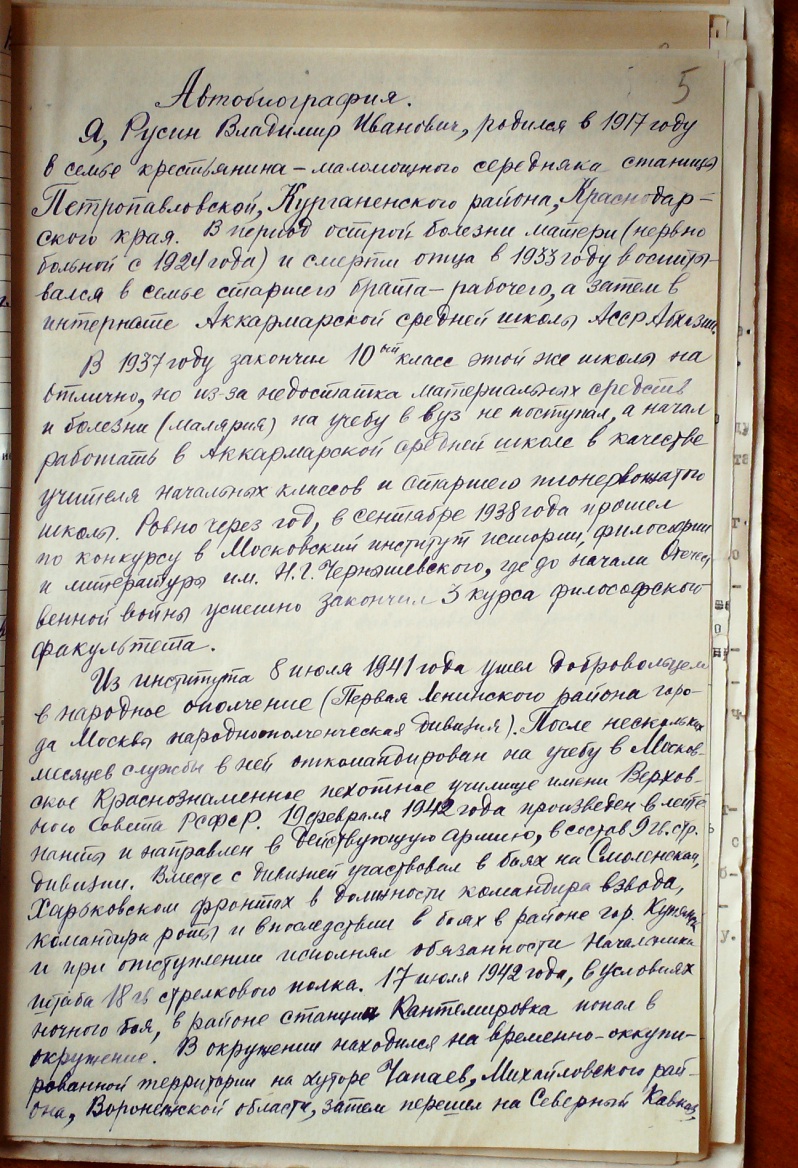 5
Автобиография.
Я, Русин Владимир Иванович, родился в 1917 году
в семье крестьянина – маломощного середняка станицы
Петропавловской, Курганенского района, Краснодар-
ского края. В период острой болезни матери (нервно
больной с 1924 года) и смерти отца в 1933 году воспиты-
вался в семье старшего брата – рабочего, а затем в
интернате Аккармарской средней школы АССР Абхазии.
В 1937 году закончил 10ый класс этой же школы на
отлично, но из-за недостатка материальных средств
и болезни (малярия) на учебу в вуз не поступал, а начал
работать в Аккармарской средней школе в качестве
учителя начальных классов и старшего пионервожатого
школы. Ровно через год, в сентябре 1938 года прошел
по конкурсу в Московский институт истории, философии
и литературы им. Н.Г. Чернышевского, где до начала Отечест
венной войны успешно закончил 3 курса философского
факультета.
Из института 8 июля 1941 года ушел добровольцем
в народное ополчение (Первая Ленинского района горо-
да Москвы народноополченческая дивизия). После нескольких
месяцев службы в ней откомандирован на учебу в Москов-
ское Краснознаменное пехотное училище имени Верхов-
ного Совета РСФСР. 19 февраля 1942 года произведен в лейте
нанты и направлен в действующую армию, в состав 9 гв. стр.
дивизии. Вместе с дивизией участвовал в боях на Смоленском,
Харьковском фронтах в должности командира взвода,
командира роты и впоследствии в боях в районе гор. Купянск
и при отступлении исполнял обязанности Начальника
штаба 18 гв стрелкового полка. 17 июля 1942 года, в условиях
ночного боя, в районе станции Кантемировка попал в
окружение. В окружении находился на временно-оккупи-
рованной территории на хуторе Чапаев, Михайловского рай-
она, Воронежской области, затем перешел на Северный Кавказ,